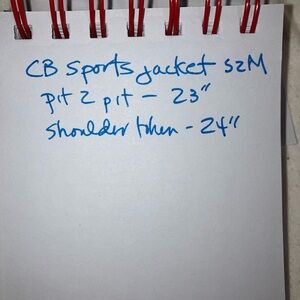 CB sports jacket szM
pit 2 pit - 23"
shoulder - 24"